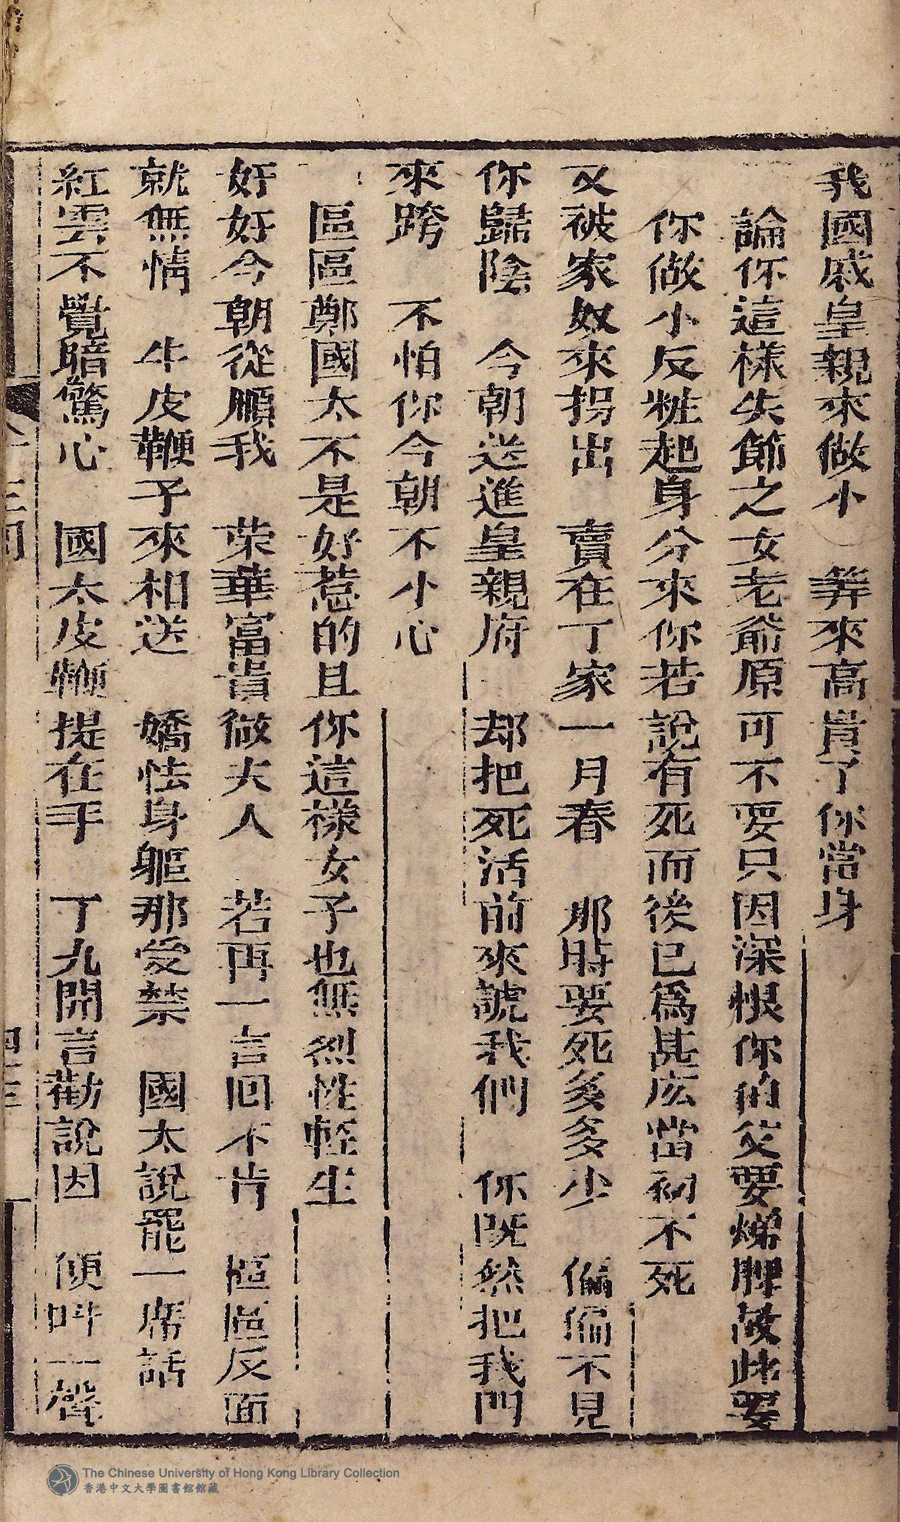 我國戚皇親來做小　筭來高貴了你當身
論你這樣失節之女老爺原可不要只因深恨你伯父要燬脾故此要
你做小反粧起身分來你若說有死而後已爲甚庅當初不死
又被家奴來拐出　賣在丁家一月春　那時要死多多少　偏偏不見
你歸陰　今朝送進皇親府　却把死活前來諕我們　你既然把我門
來跨　不怕你今朝不小心
區區鄭國太不是好惹的且你這樣女子也無烈性輕生
好好今朝從順我　荣華富貴做夫人　若再一言回不肯　區區反面
就無情　牛皮鞭子來相送　嬌怯身軀那爱禁　國太說罷一席話
紅雲不覺暗驚心　國太皮鞭提在手　丁九開言勸說因　便呌一聲
The Chinese University of Hong Kong Library Collection
香港中文大學圖書館館藏